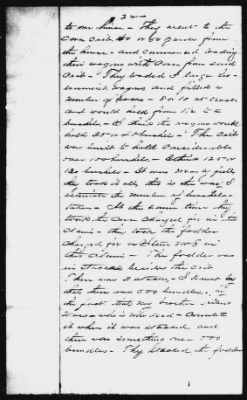 to our house - They went to the
Corn Crib 40 or 50 paces from
the house - and commenced loading
their wagons with Corn from said
Crib - They loaded 2 large Gov-
ernment wagons and filled a
number of sacks - 8 or 10 at least
and would hold from 1½ to 2
bushels - I think the wagons would
hold 25 or bushels - The Crib
was built to hold considerable
over 100 bushels - 125 or
130 bushels - It was nearly full
they took it all, this is the way I
estimate the number of bushels
taken - At the same time they
took the Corn charged for in the
Claim - they took the fodder
charged for in Item No 8 in
this Claim - The fodder was
in stacks besides the Crib
There was 2 stacks - I know
that there was 500 bundles in
the first that my brother
- who is now dead - Counted
it when it was stacked, and
there was something near 500
bundles - They stacked the fodder